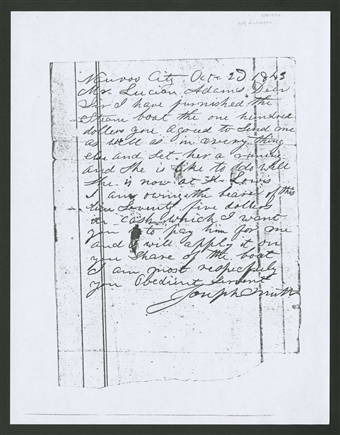 Nuvoo City Octr 2d 1843
Mr. Lucian Adams Dear
Sir I have furnished the
Steam boat the one hundred
dollars you agreed to send me
as well as in every thing
else and set her a
and She is like to do well
She is now at St Lowis
I am owing the bearer of this
seventy five dollars
in cash which I want
you to pay him for me
and I will apply it on
you share of the boat
I am most respecfuly
you Obedient Servent
Joseph Smith